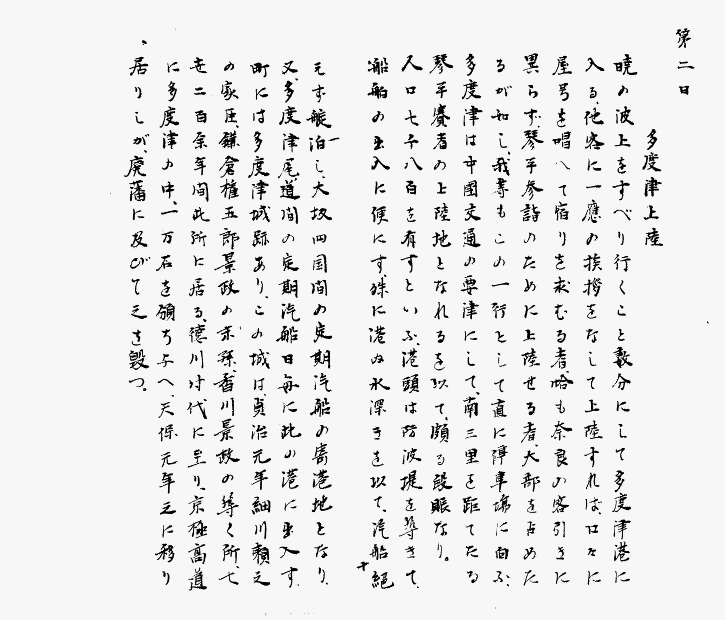 第二日
多度津上陸
暁の波上をすべり行くこと数分にして多度津港に
入る、他客に一応の挨拶をなして上陸すれば、口々に
屋号を唱へて宿りを求むる者、恰も奈良の客引きに
異らず、琴平参詣のために上陸せる者、大部を占めた
るが如し、我等もこの一行として直に停車場に向ふ、
多度津は中国交通の要津にして、南三里を距てたる
琴平賽者の上陸地となれるを以て、頗る殷賑なり。
人口七千八百を有すといふ、港頭は防波堤を築きて、
船舶の出入に便にす、殊に港内水深きを以て、汽船絶
えず碇泊し、大坂四国間の定期汽船の寄港地となり、
又、多度津尾道間の定期汽船日毎に此の港に出入す、
町には多度津城跡あり、この城は、貞治元年細川頼之
の家臣、鎌倉権五郎景政の末孫、香川景政の築く所、七
世二百余年間此所に居る、徳川時代に至り、京極高道
に多度津の中、一万石を領ち与へ、天保元年之に移り
居りしが、廃藩に及びて之を毀つ。